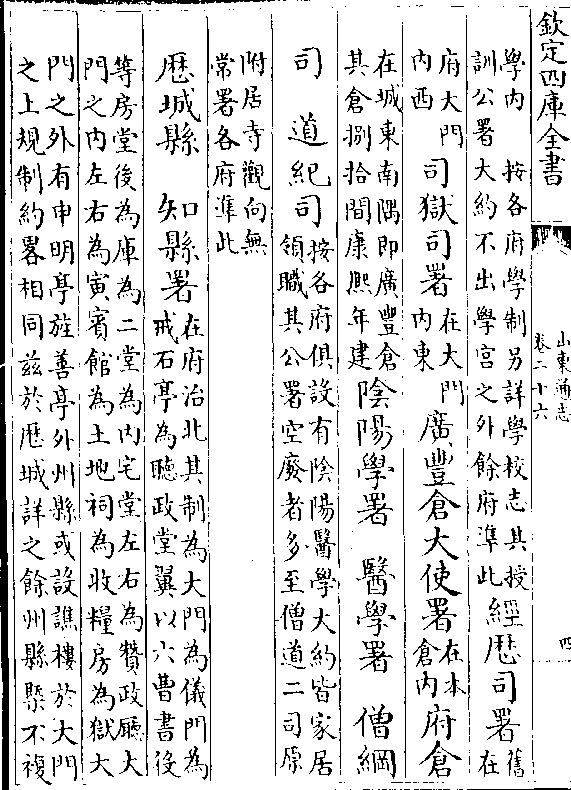 欽定四庫全書
山東通志
卷二十六
四
學內　按各府學制另詳學校志其授
訓公署大約不出學宮之外餘府準此經歷司署在舊
府大門
內西　司獄司署在大門
內東　廣豐倉大使署在本
倉內　府倉
在城東南隅即廣豐倉
其倉捌拾間康熙年建陰陽學署　醫學署　僧綱
司　道紀司按各府俱設有陰陽醫學大約皆家居
領職其公署空廢者多至僧道二司原
附居寺觀向無
常署各府準此
歷城縣　知縣署在府治北其制為大門為儀門為
戒石亭為聽政堂翼以六曹書役
等房堂後為庫為二堂為內宅堂左右為贊政廳大
門之內左右為寅賓館為土地祠為收糧房為獄大
門之外有申明亭旌善亭外州縣或設譙樓於大門
之上規制約畧相同兹於歷城詳之餘州縣槩不複